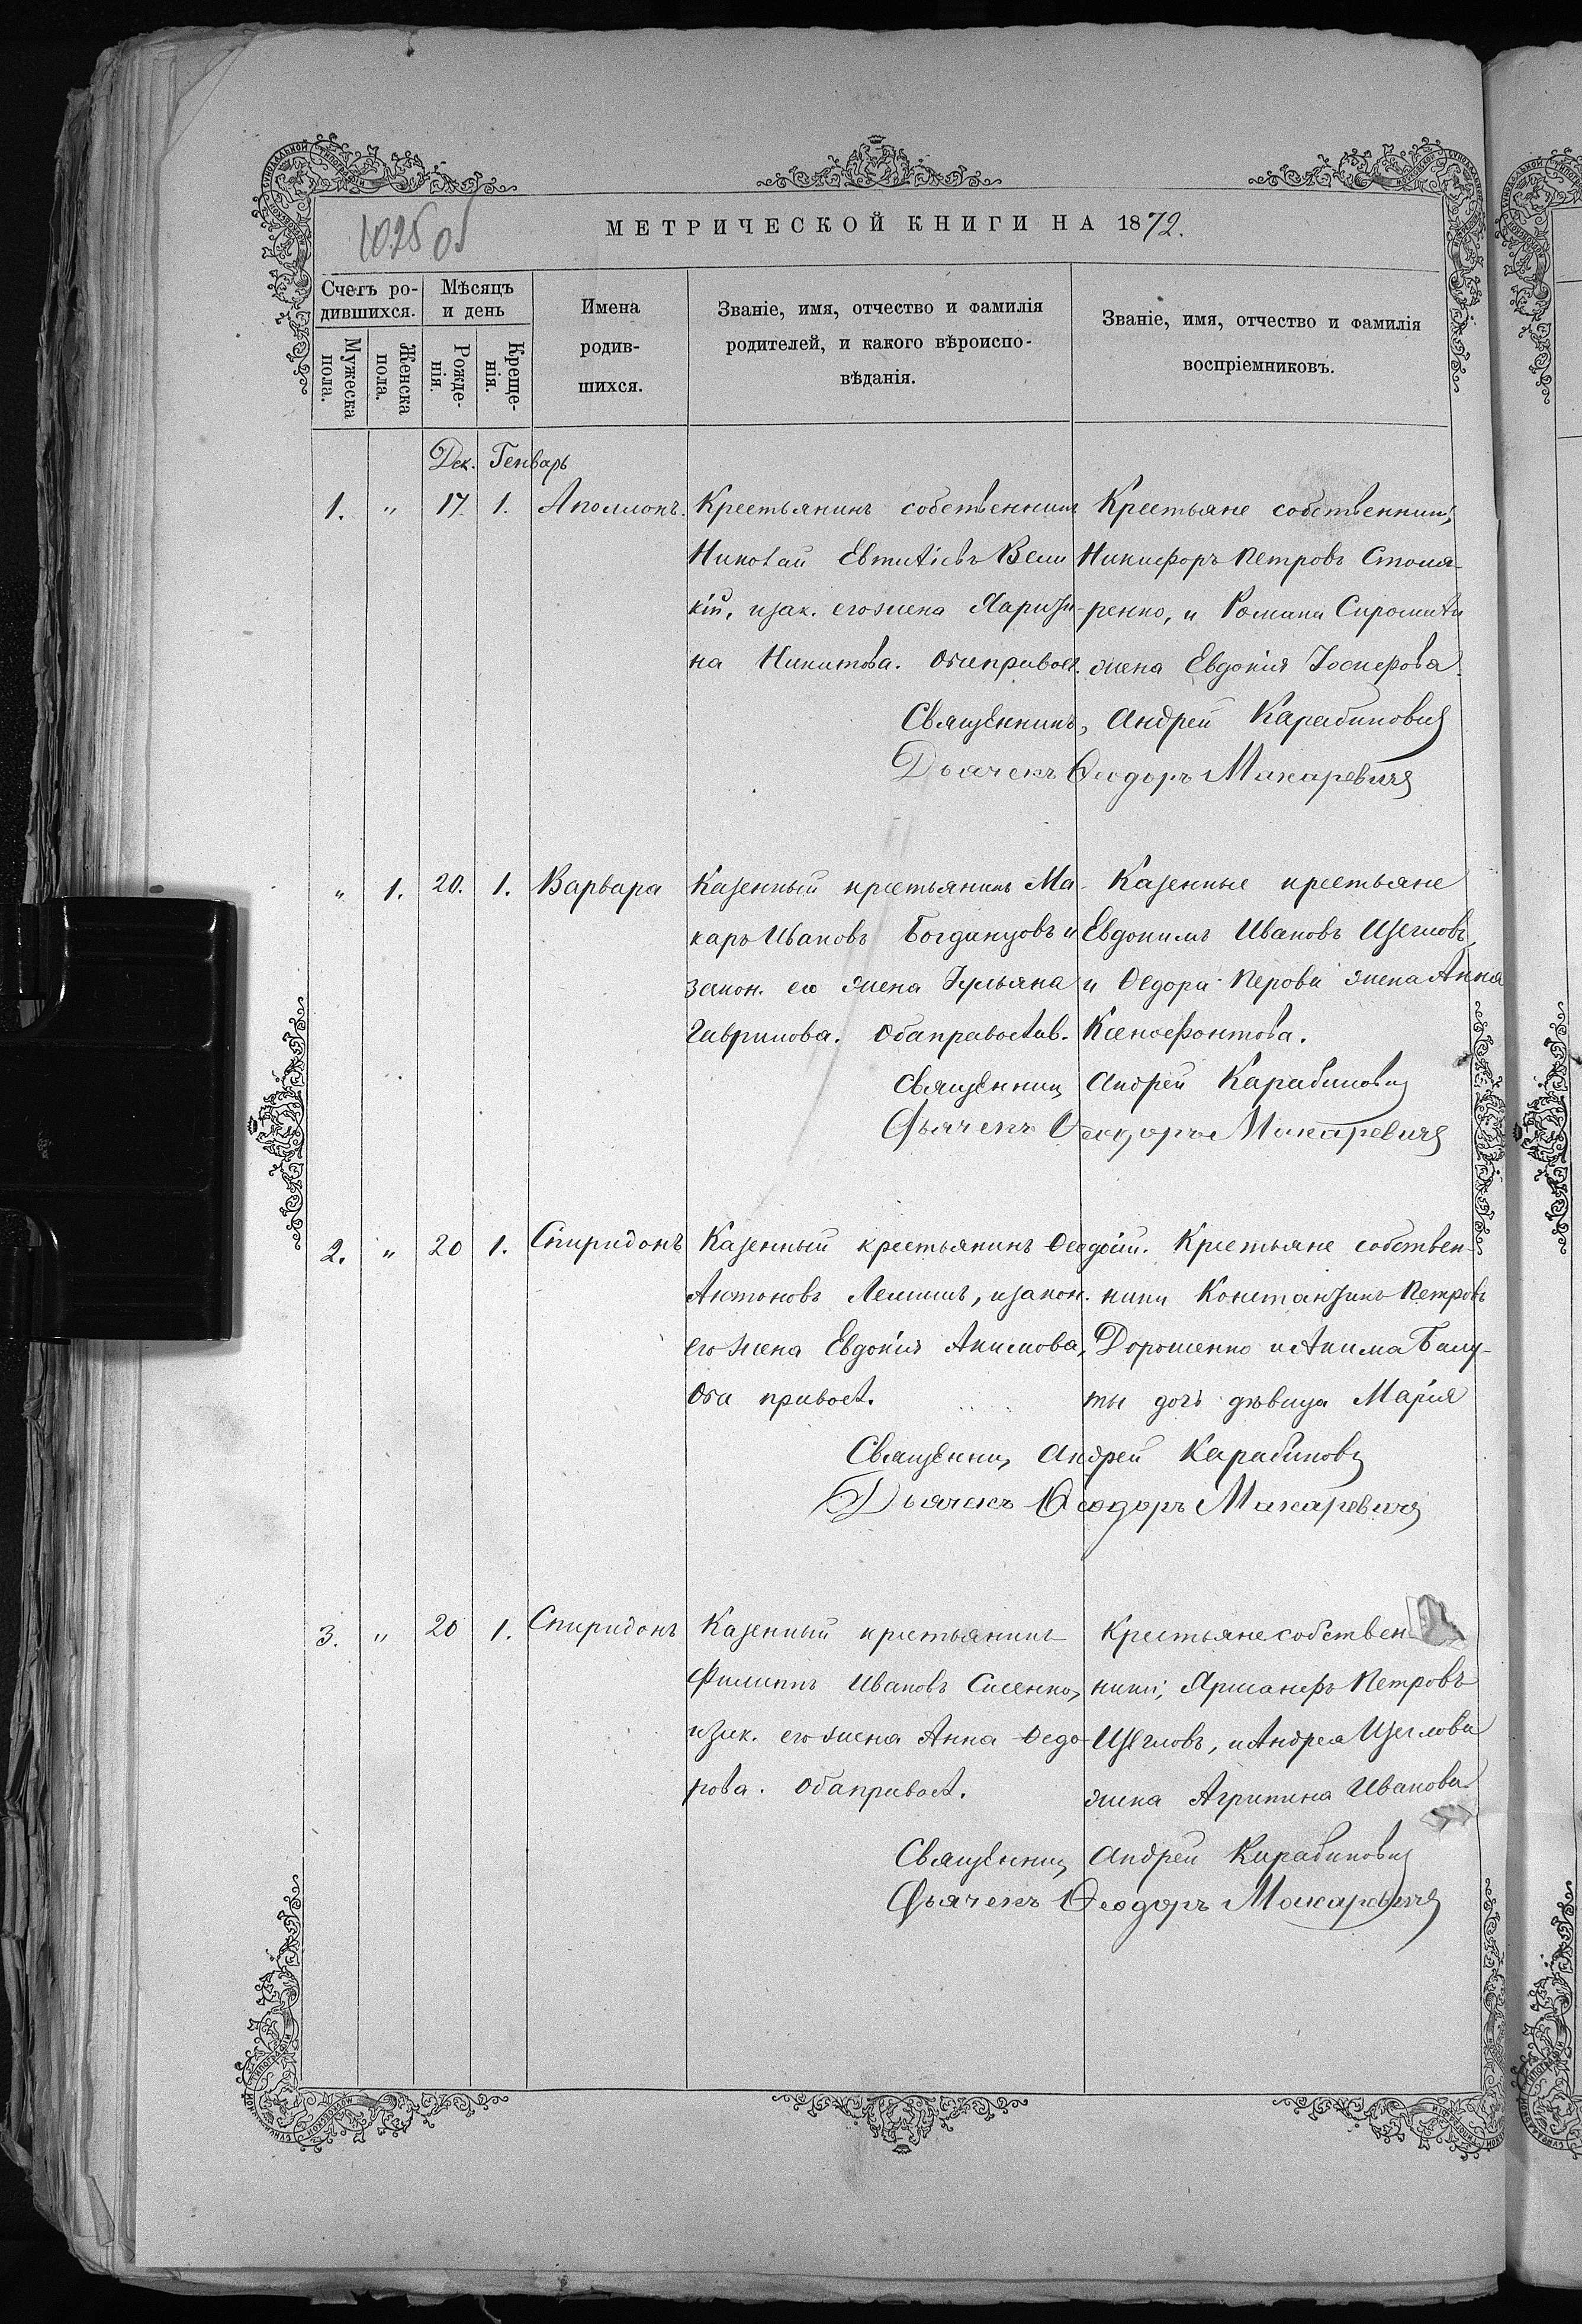 1025 об
МЕТРИЧЕСКОЙ КНИГИ НА 1872.
Счетъ родившихся.
Мѣсяцъ и день
Мужеска пола.
Женска пола.
Рожденія.
Крещенія.
Имена родившихся.
Званіе, имя, отчество и фамилія родителей, и какого вѣроисповѣданія.
Званіе, имя, отчество и фамилія воспріемниковъ.
Дек. Генварь
1. " 17. 1. Аполлонъ.
Крестьянинъ собственникъ
Николай Евтихіевъ Вели
кій, и зак. его жена Хари
на Никитова. Оба правосл.
Крестьяне собственники,
Никифоръ Петровъ Столя-
ренко, и Романа
жена Евдокія Іосифова.
Священникъ, Андрей Карабиновичъ
Дьячекъ Ѳеодоръ Макаревичъ
" 1. 20. 1. Варвара
Казенный крестьянинъ Ма-
каръ Ивановъ Богданцовъ и
закон. его жена Іульяна
Гаврилова. Оба православ.
Казенные крестьяне
Евдокимъ Ивановъ Щегловъ,
и Ѳедора Перова жена Анна
Ксенофонтова.
Священникъ Андрей Карабиновичъ
Дьячекъ Ѳеодоръ Макаревичъ
2. " 20 1. Спиридонъ
Казенный крестьянинъ Ѳеодосій
Антоновъ Лемишъ, и закон.
его жена Евдокія Акимова,
Оба правосл.
Крестьяне собствен-
ники Константинъ Петровъ
Дорошенко и Акима Балу-
ты дочь дѣвица Марія
Священникъ, Андрей Карабиновичъ
Дьячекъ Ѳеодоръ Макаревичъ
3. " 20 1. Спиридонъ
Казенный крестьянинъ
Филиппъ Ивановъ Силенко,
и зак. его жена Анна Ѳедо-
рова. Оба правосл.
Крестьяне собствен
ники, Петровъ
Щегловъ, и Андрея Щеглова
жена Агрипина Иванова.
Священникъ Андрей Карабиновичъ
Дьячекъ Ѳеодоръ Макаревичъ